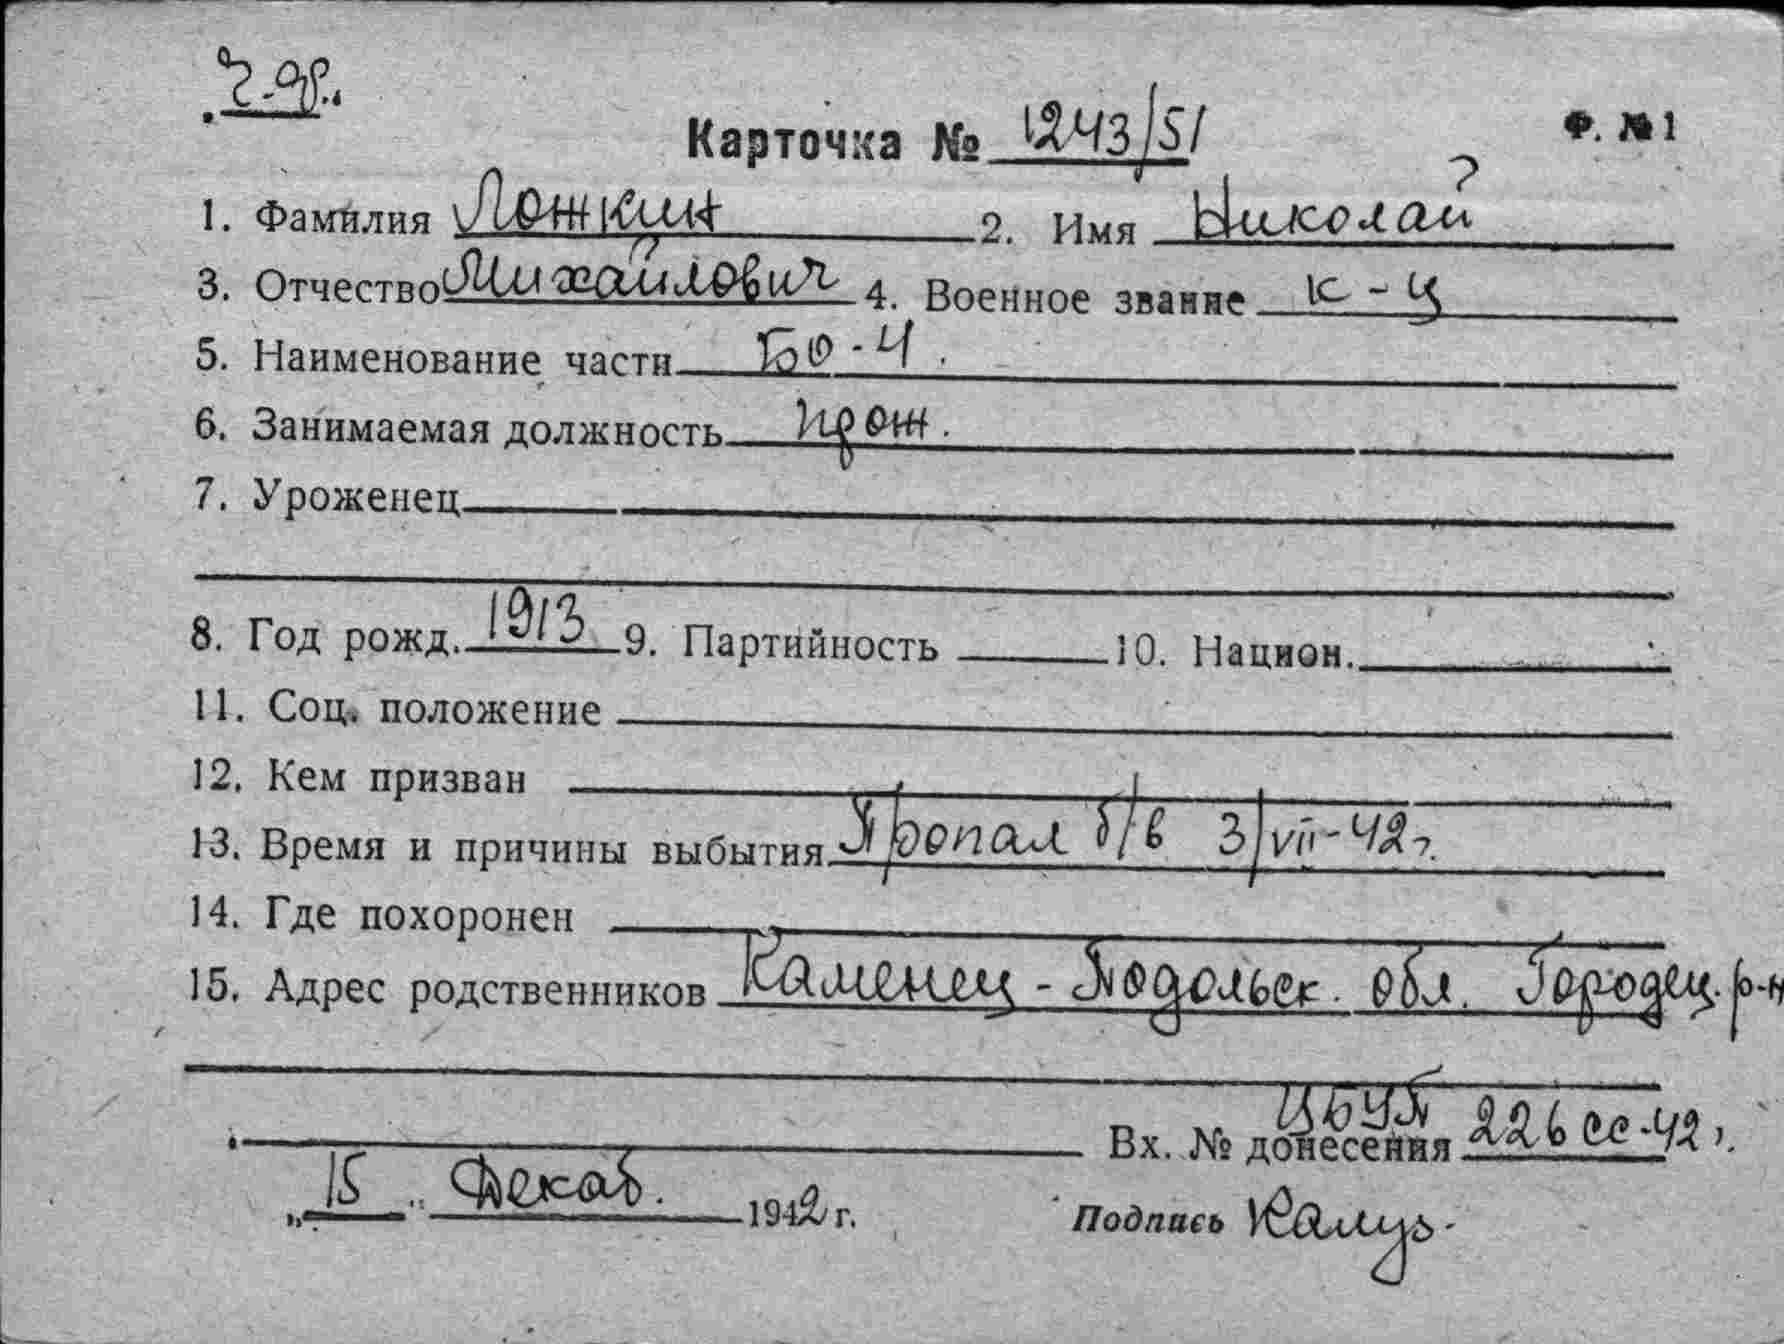 Ч-Ф.
Карточка № 1243/51 Ф. № 1
1. Фамилия Ложкин 2. Имя Николай
3. Отчество Михайлович 4. Военное звание к-ц
5. Наименование части БО-Ч.
6. Занимаемая должность прож.
7. Уроженец
8. Год рожд. 1913 9. Партийность 10. Национ.
11. Соц. положение
12. Кем призван
13. Время и причины выбытия Пропал б/в 3/VII-42г.
14. Где похоронен
15. Адрес родственников Каменец-Подольск. обл. Городец. р-н
ЦБУП
Вх. № донесения 226сс-42г.
„15" Декаб. 1942 г. Подпись